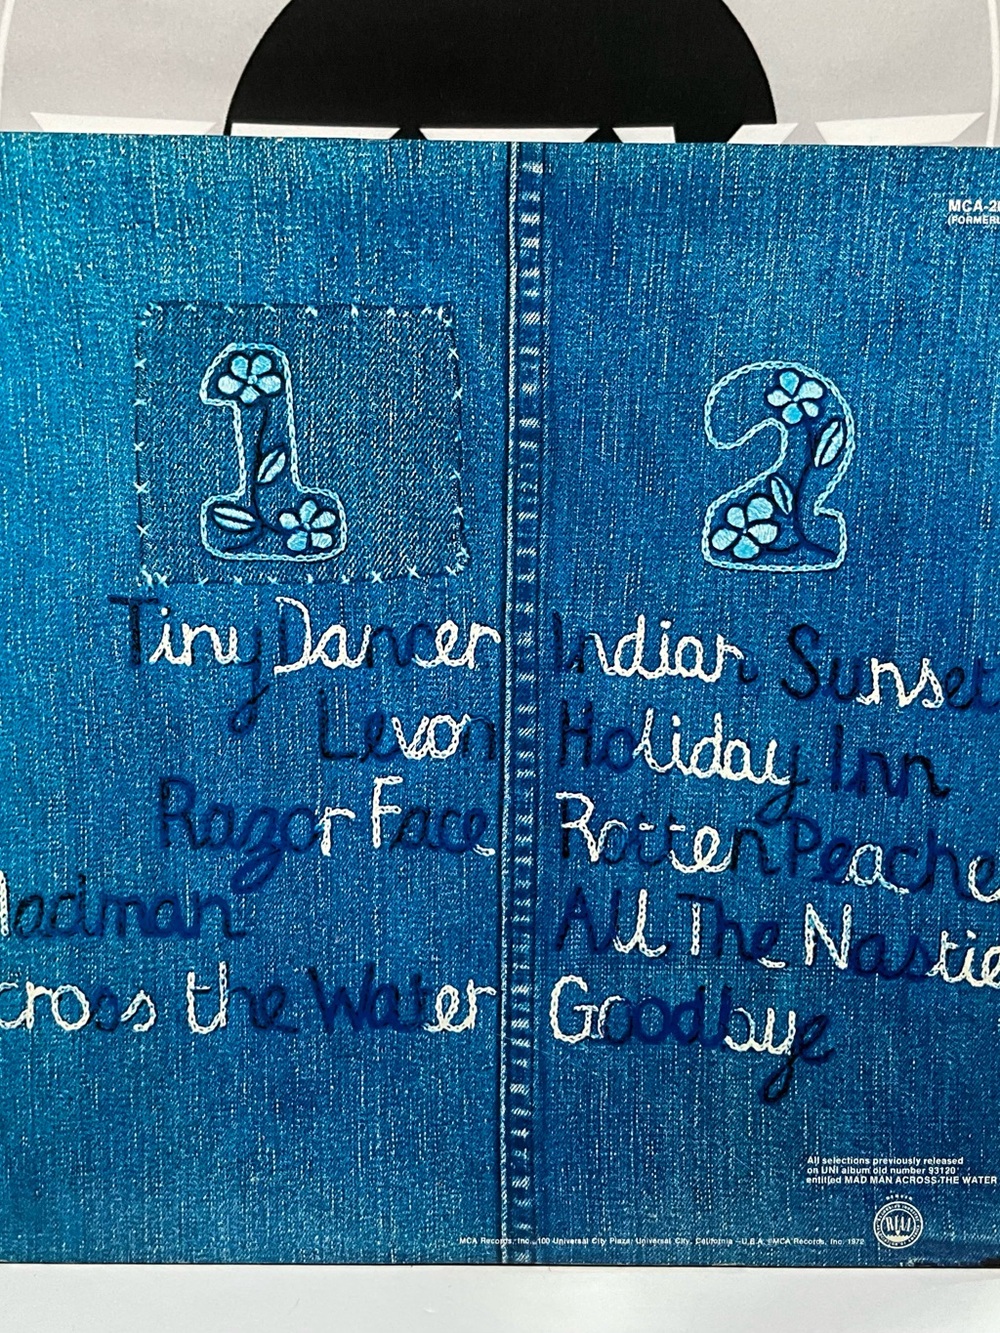 MCA-2
(FORMERL
1
2
Tiny Dancer
Levon
Razor Face
Madman
cross the Water
Indian Sunset
Holiday Inn
Rotten Peache
All The Nastie
Goodbye
All selections previously released
on UNI album old number 93120
entitled MAD MAN ACROSS THE WATER
MCA Records, Inc., 100 Universal City Plaza, Universal City, California – U.S.A. MCA Records, Inc. 1972